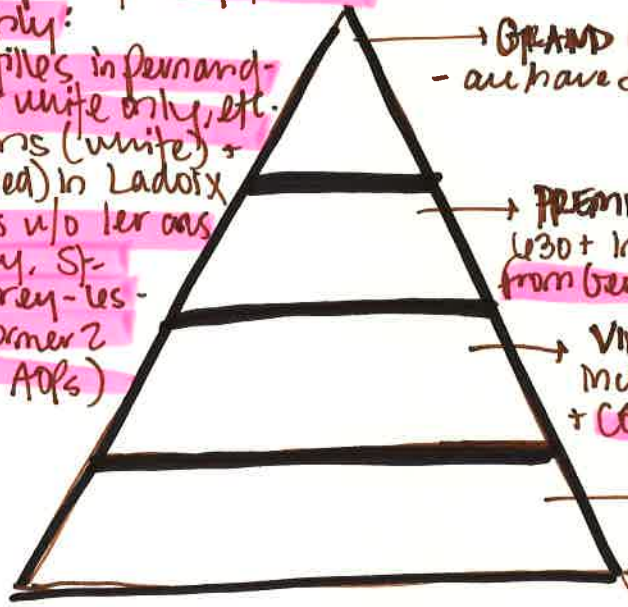 only:
in pernand-
white only, etc.
(white) +
ed) in Ladoix
s w/o 1er crus
y, St-
rey-les-
ormer 2
AOPs)
→ GRAND
- all have
→ PREMI
630+ in
from Ge
→ VI
MU
+ CO